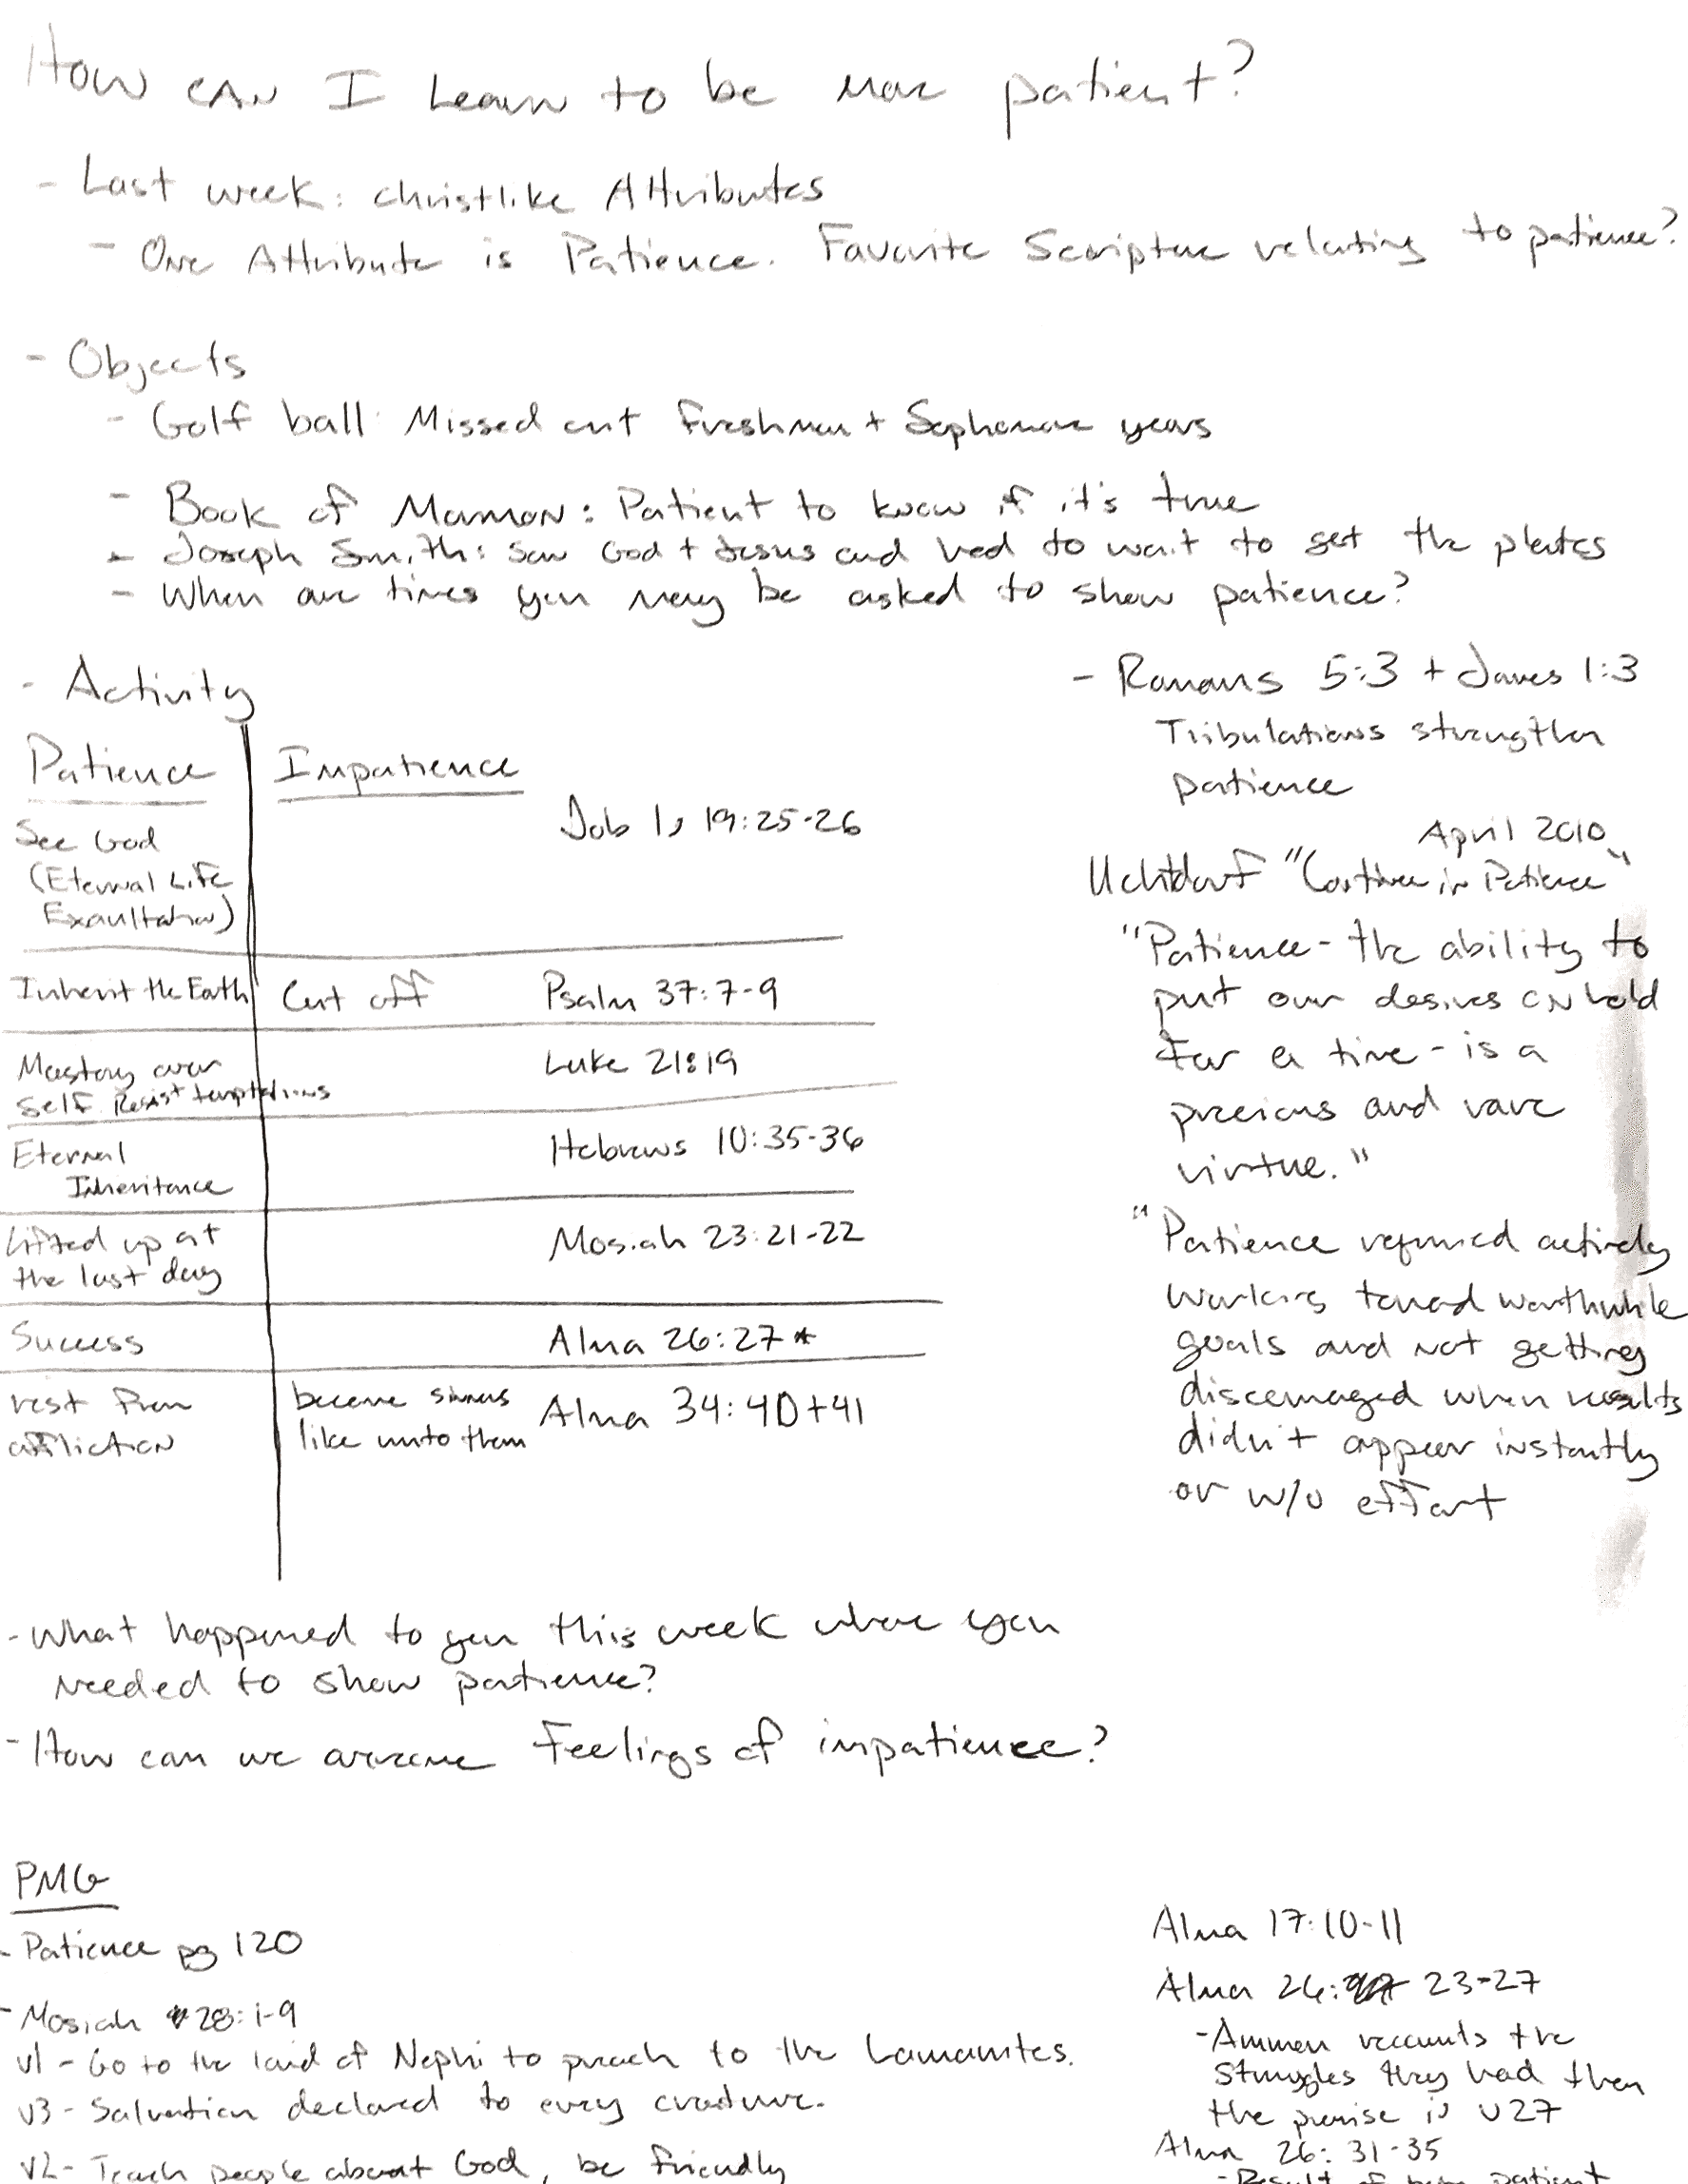 How can I Learn to be more patient?
- Last week: christlike Attributes
- One Attribute is Patience. Favorite Scripture relating to patience?
- Objects
- Golf ball: Missed cut Freshman + Sophomore years
- Book of Mormon: Patient to know if it's true
- Joseph Smith: Saw God + Jesus and had to wait to get the plates
- When are times you may be asked to show patience?
- Activity
Patience | Impatience
See God
(Eternal Life
Exaultation)
Job 1, 19:25-26
Inherit the Earth Cut off Psalm 37:7-9
Mastery over
Self. Resist temptations
Luke 21:19
Eternal
Inheritance
Hebrews 10:35-36
Lifted up at
the last day
Mosiah 23:21-22
Success Alma 26:27*
rest from
affliction
become sinners
like unto them
Alma 34:40+41
- Romans 5:3 + James 1:3
Tribulations strengthen
patience
April 2010
Uchtdorf "Continue in Patience"
"Patience - the ability to
put our desires on hold
for a time - is a
precious and rare
virtue."
"Patience required actively
working toward worthwhile
goals and not getting
discouraged when results
didn't appear instantly
or w/o effort
- What happened to you this week where you
needed to show patience?
- How can we overcome Feelings of impatience?
PMG
- Patience pg 120
- Mosiah 28:1-9
v1 - Go to the land of Nephi to preach to the Lamanites.
v3 - Salvation declared to every creature.
v2 - Teach people about God, be friendly
Alma 17:10-11
Alma 26: 23-27
- Ammon recounts the
struggles they had then
the promise is v27
Alma 26:31-35
- Result of being patient